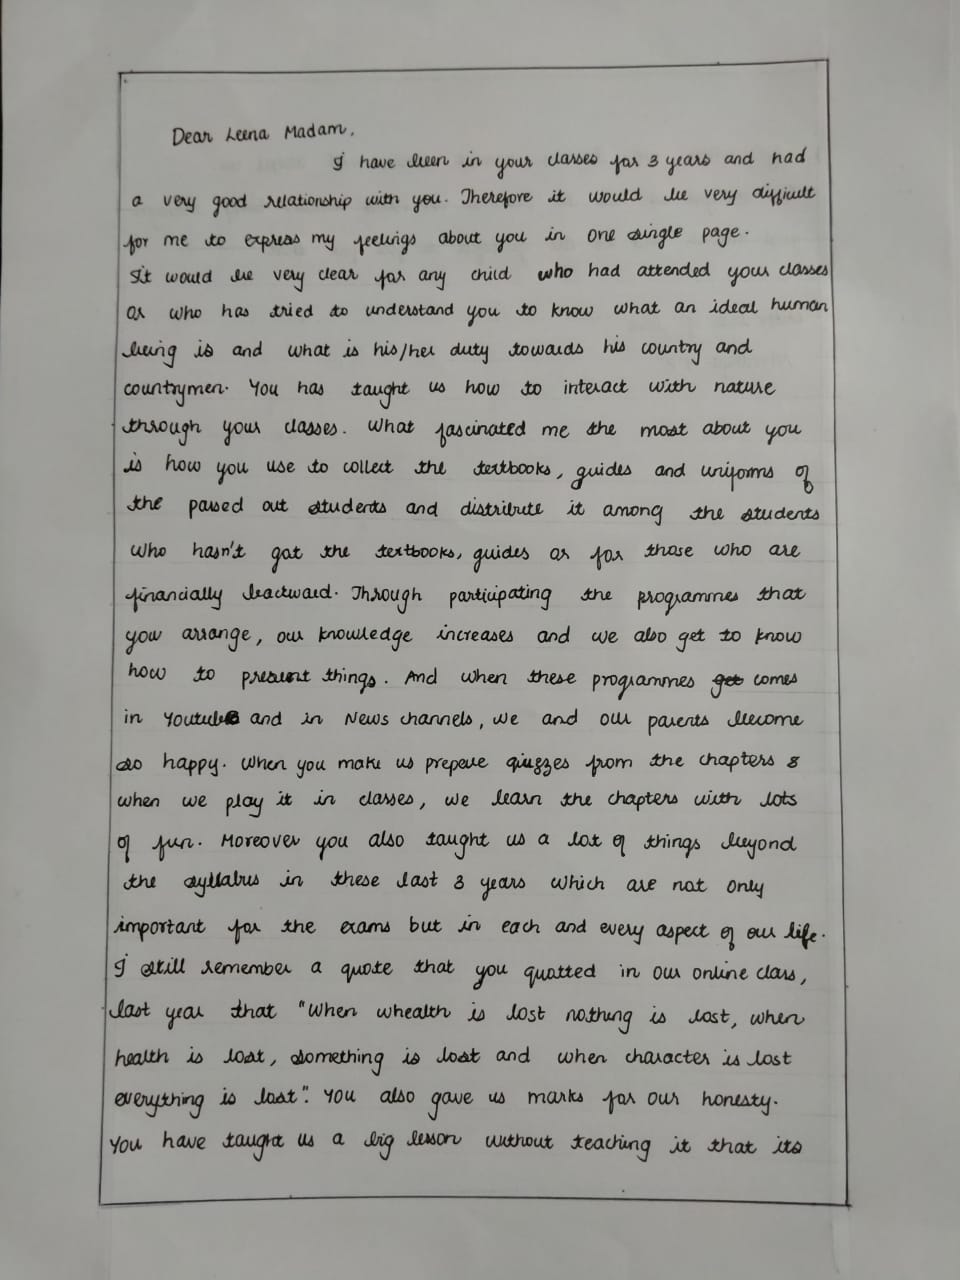 Dear Leena Madam,
I have been in your classes for 3 years and had
a very good relationship with you. Therefore it would be very difficult
for me to express my feelings about you in one single page.
It would be very clear for any child who had attended your classes
or who has tried to understand you to know what an ideal human
being is and what is his/her duty towards his country and
countrymen. You has taught us how to interact with nature
through your classes. What fascinated me the most about you
is how you use to collect the textbooks, guides and uniforms of
the passed out students and distribute it among the students
who hasn't got the textbooks, guides or for those who are
financially backward. Through participating the programmes that
you arrange, our knowledge increases and we also get to know
how to present things. And when these programmes get comes
in Youtube and in News channels, we and our parents become
so happy. When you make us prepare quizzes from the chapters &
when we play it in classes, we learn the chapters with lots
of fun. Moreover you also taught us a lot of things beyond
the syllabus in these last 3 years which are not only
important for the exams but in each and every aspect of our life.
I still remember a quote that you quotted in our online class,
last year that "When whealth is lost nothing is lost, when
health is lost, something is lost and when character is lost
everything is lost". You also gave us marks for our honesty.
You have taught us a big lesson without teaching it that its